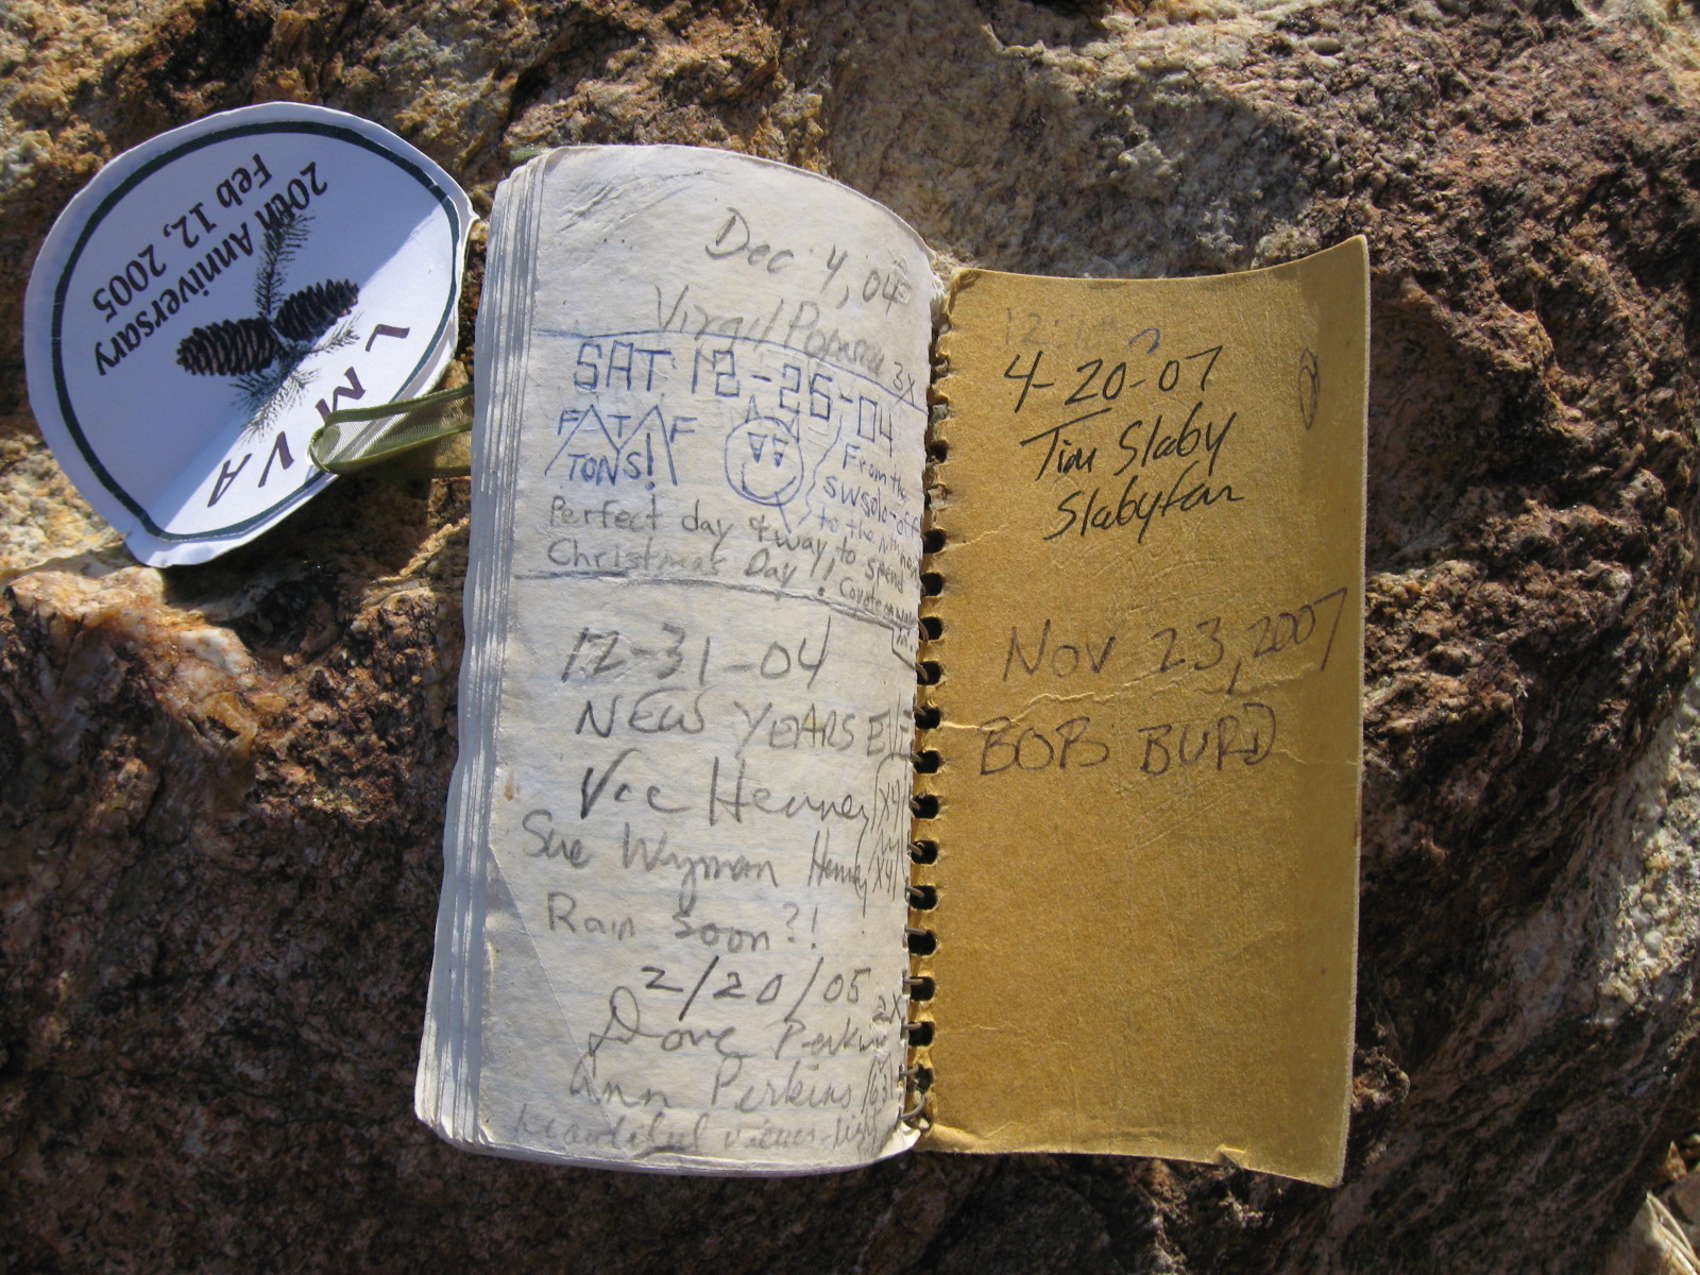 20th Anniversary
Feb 12, 2005
L M V A
Dec 4, 04
Virgil 3X
SAT 12-25-04
FAT AF
TONS!
From the
SW solo-off
to the Nth
Perfect day & way to spend
Christmas Day!
Coyote
12-31-04
NEW YEARS EVE
Vic Henney X41
Sue Wyman Henney X41
Rain soon?!
2/20/05
Dave Perkins 2X
Ann Perkins
beautiful views
4-20-07
Tim Slaby
Slabyfan
Nov 23, 2007
BOB BURD